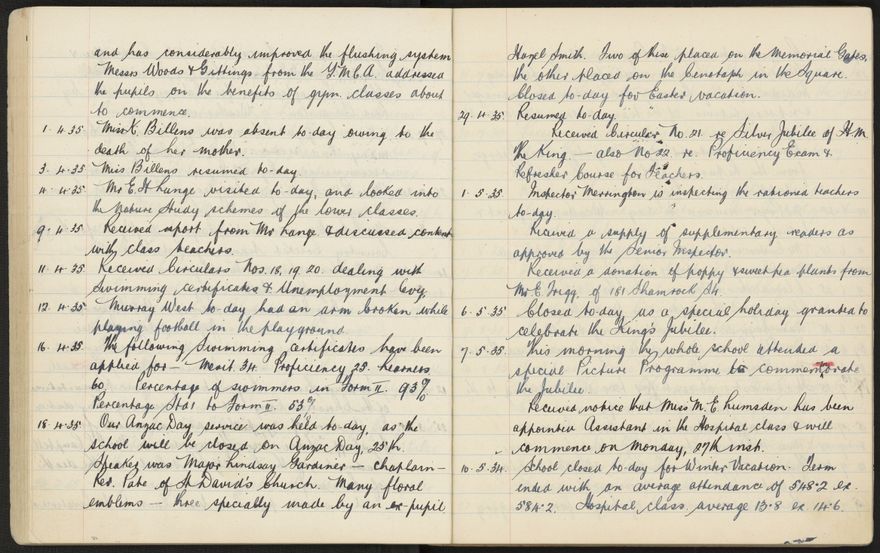 and has considerably improved the flushing system
Messrs Woods & Gittings from the Y.M.C.A. addressed
the pupils on the benefits of gym. classes about
to commence.
1. 4.35 Miss K. Billens was absent to-day owing to the
death of her mother.
3. 4.35 Miss Billens resumed to-day.
4. 4.35 Mr E. H Lange visited to-day, and looked into
the Nature Study schemes of the lower classes.
9. 4.35 Received report from Mr Lange & discussed content
with class teachers.
11. 4.35 Received Circulars Nos. 18, 19, 20. dealing with
Swimming certificates & Unemployment levy.
12. 4.35 Murray West to-day had an arm broken while
playing football in the playground
16. 4.35 The following Swimming certificates have been
applied for — Merit 34. Proficiency 25. Learners
60. Percentage of swimmers in Form II. 93%
Percentage Std 1 to Form II. 53%
18. 4.35 Our Anzac Day service was held to-day, as the
school will be closed on Anzac Day, 25th.
Speaker was Major Lindsay Gardiner — chaplain —
Rev. Pate of St David's Church. Many floral
emblems — three specially made by an ex-pupil
Hazel Smith. Two of these placed on the Memorial Gates,
the other placed on the Cenotaph in the Square.
Closed to-day for Easter vacation.
29. 4.35 Resumed to-day.
Received Circular No. 21. re Silver Jubilee of H.M.
the King. — also No 22. re. Proficiency Exam &
Refresher Course for Teachers.
1. 5.35 Inspector Merrington is inspecting the rationed teachers
to-day.
Received a supply of supplementary readers as
approved by the Senior Inspector.
Received a donation of poppy & sweet pea plants from
Mr E. Trigg, of 181 Shamrock St.
6. 5.35 Closed to-day as a special holiday granted to
celebrate the King's Jubilee.
7. 5.35. This morning the whole school attended a
special Picture Programme to commemorate
the Jubilee.
Received notice that Miss M. E. Lumsden has been
appointed Assistant in the Hospital class & will
commence on Monday, 27th inst.
10. 5.34. School closed to-day for Winter Vacation. Term
ended with an average attendance of 548.2 ex.
584.2. Hospital class average 13.8 ex 14.6.